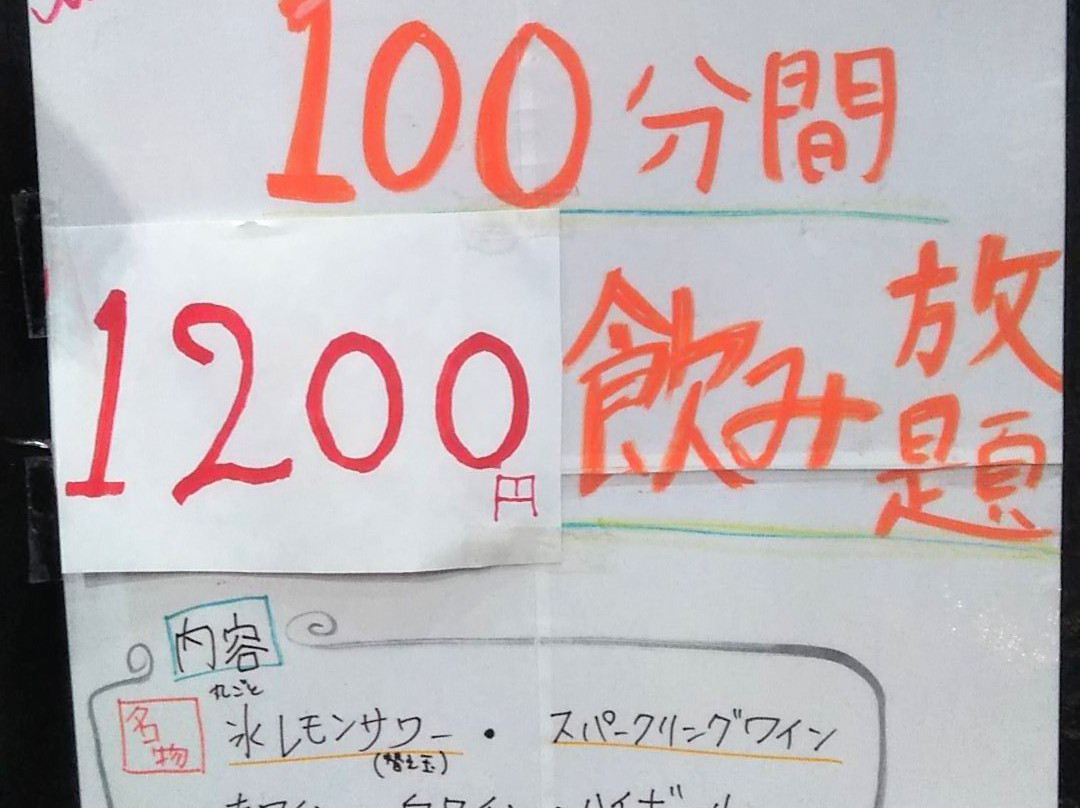 100分間
1200円
飲み放題
内容
名物 丸ごと
氷レモンサワー・スパークリングワイン
(替え玉)